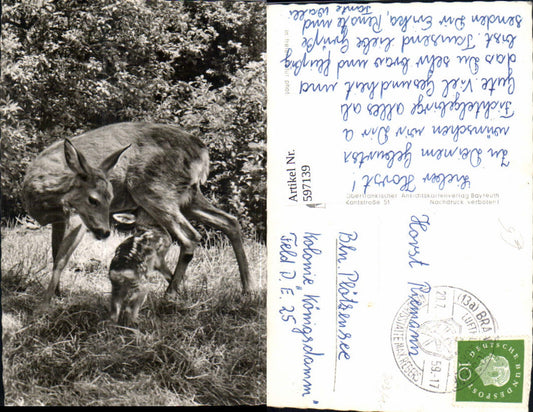 Lieber Horst!
Zu Deinem Geburtstg
wünschen wir Dir a.
Fichtelgebirge alles alb
Gute. Viel Gesundheit und
das Du sehr brav und fleißig
bist. Tausend liebe Grüße
senden Dir Erika, Renate und
Tante Walli
Artikel Nr.
597139
Oberfränkischer Ansichtskartenverlag Bayreuth
Kantstraße 51 Nachdruck verboten!
Horst Riemann
Bln Plötzensee
Kolonie "Königsdamm"
Feld D. E. 25
(13a)
59-17
10
DEUTSCHE BUNDESPOST